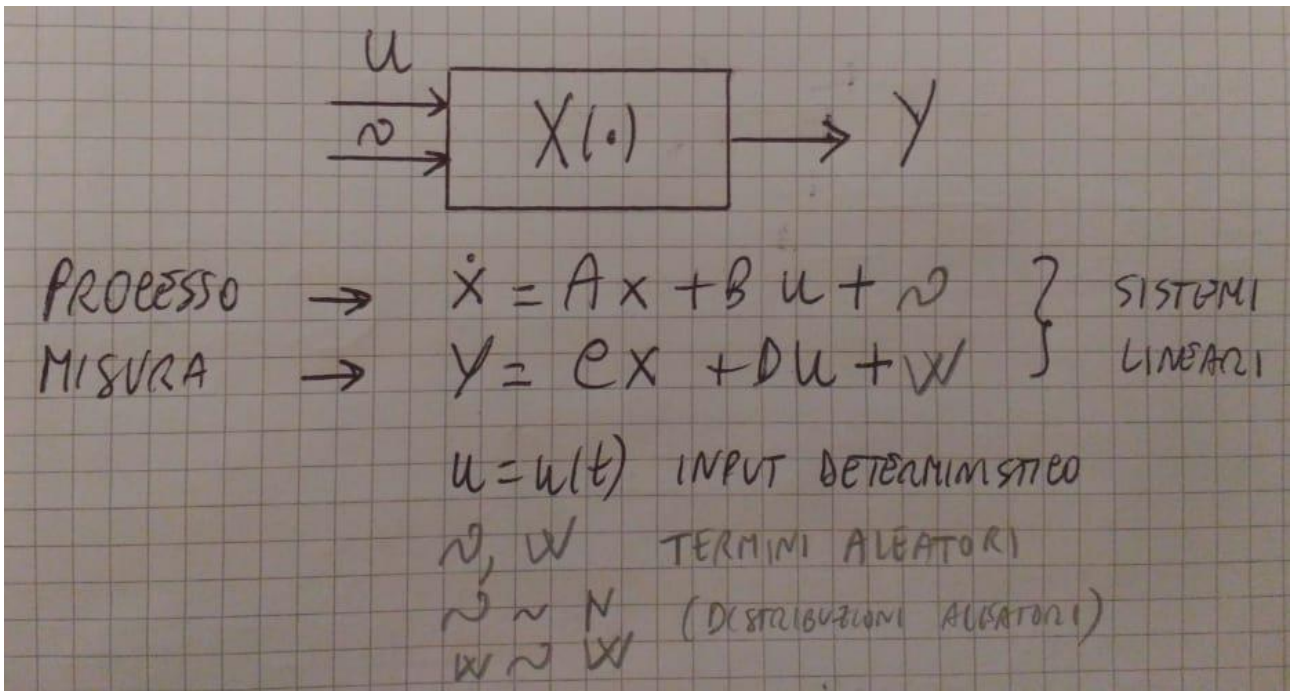 u
v X(·) → Y
PROCESSO → ẋ = Ax + Bu + v } SISTEMI
MISURA → Y = Cx + Du + W LINEARI
u = u(t) INPUT DETERMINISTICO
v, W TERMINI ALEATORI
v ~ N (DISTRIBUZIONI ALEATORI)
w ~ W